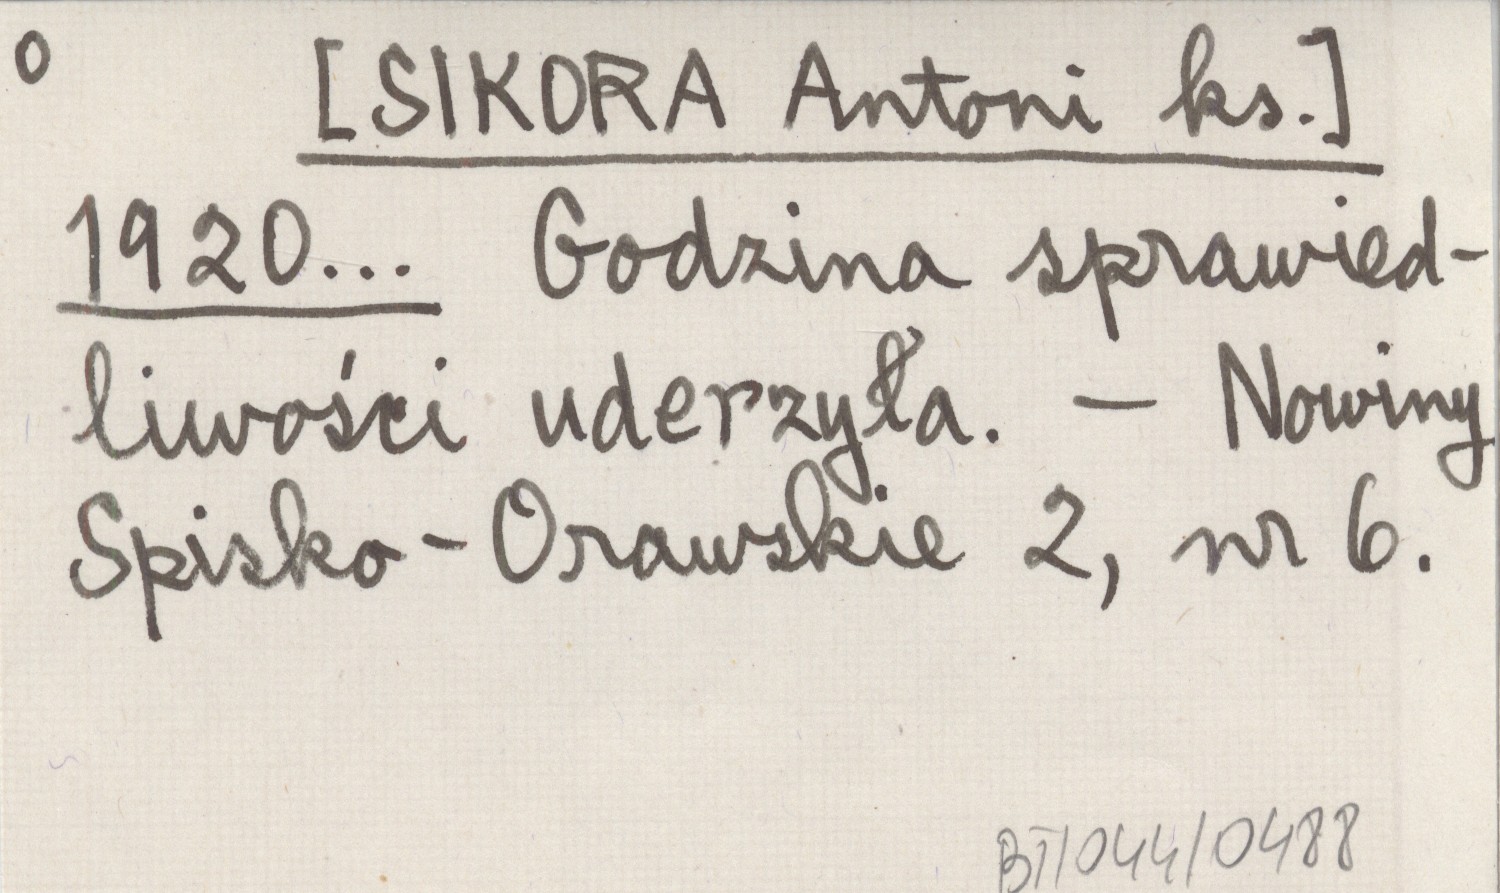 o [SIKORA Antoni ks.]
1920... Godzina sprawied-
liwości uderzyła. — Nowiny
Spisko-Orawskie 2, nr 6.
BT/044/0488